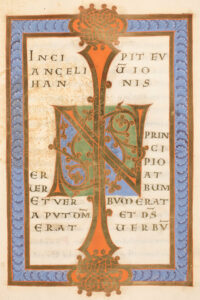 INCI PIT EU
ANGELI Ū IO
HAN NIS
IN
PRIN
CI
PIO
ER AT
UER BUM
ET UER BUM ERAT
APUT DM̄ ET DS̄
ERAT UERBU